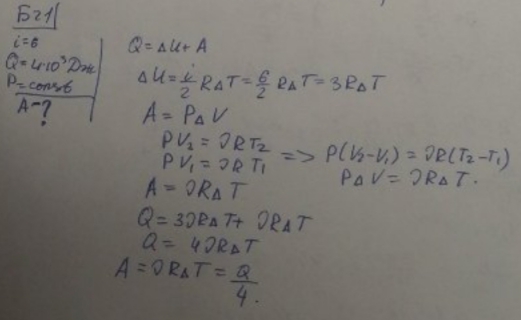 Б21
i=6
Q=4·10³ Дж
P=const
A-?
Q=ΔU+A
ΔU=i/2 RΔT=6/2 RΔT=3RΔT
A=PΔV
PV₂=νRT₂
PV₁=νRT₁ => P(V₂-V₁)=νR(T₂-T₁)
PΔV=νRΔT.
A=νRΔT
Q=3νRΔT+νRΔT
Q=4νRΔT
A=νRΔT=Q/4.